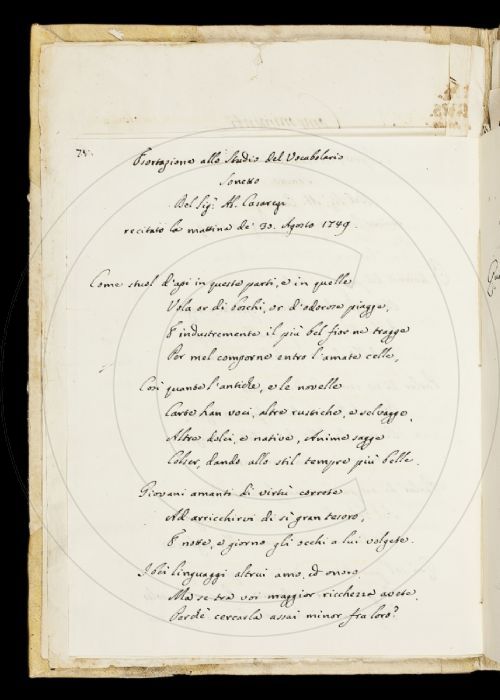 78.
Esortazione allo Studio del Vocabolario
Sonetto
Del Sig.r Ab. Casaregi
recitato la mattina de' 30. Agosto 1749.
Come stuol d'api in queste parti, e in quelle
Vola or di boschi, or d'odorose piagge,
E industremente il più bel fior ne tragge
Per mel comporne entro l'amate celle,
Così quante l'antiche, e le novelle
Carte han voci, altre rustiche, e selvagge,
Altre dolci, e native, Anime sagge
Colser, dando allo stil tempre più belle.
Giovani amanti di virtù correte
Ad arricchirvi di sì gran tesoro,
E notte, e giorno gli occhi a lui volgete.
I bei linguaggi altrui amo, ed onoro
Ma se tra voi maggior ricchezza avete,
Perchè cercarla assai minor fra loro?